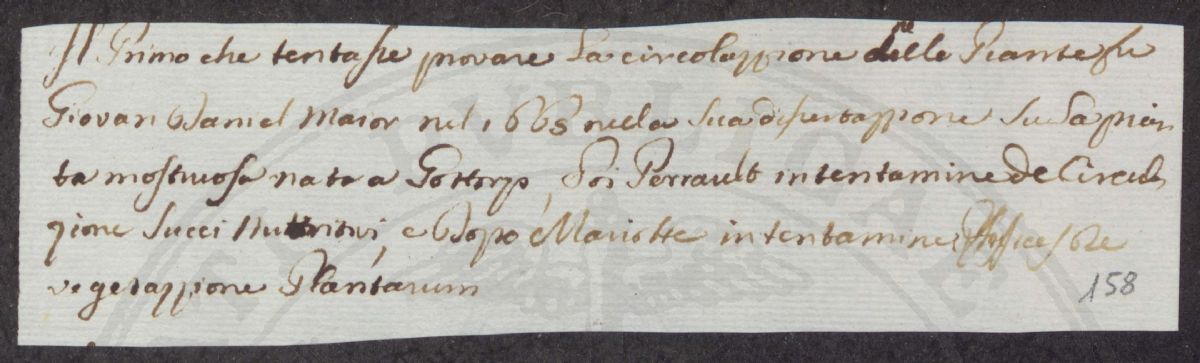 Il Primo che tentasse provare La circolazzione delle Piante fu
Giovan Daniel Maior nel 1665 nella sua dissertazzione su La pian
ta mostruosa nata a Gottorp, Poi Perrault in tentamine De Circula
zione Succi Nutritivi, e Dopo Mariotte in tentamine Physices De
vegetazzione Plantarum
158